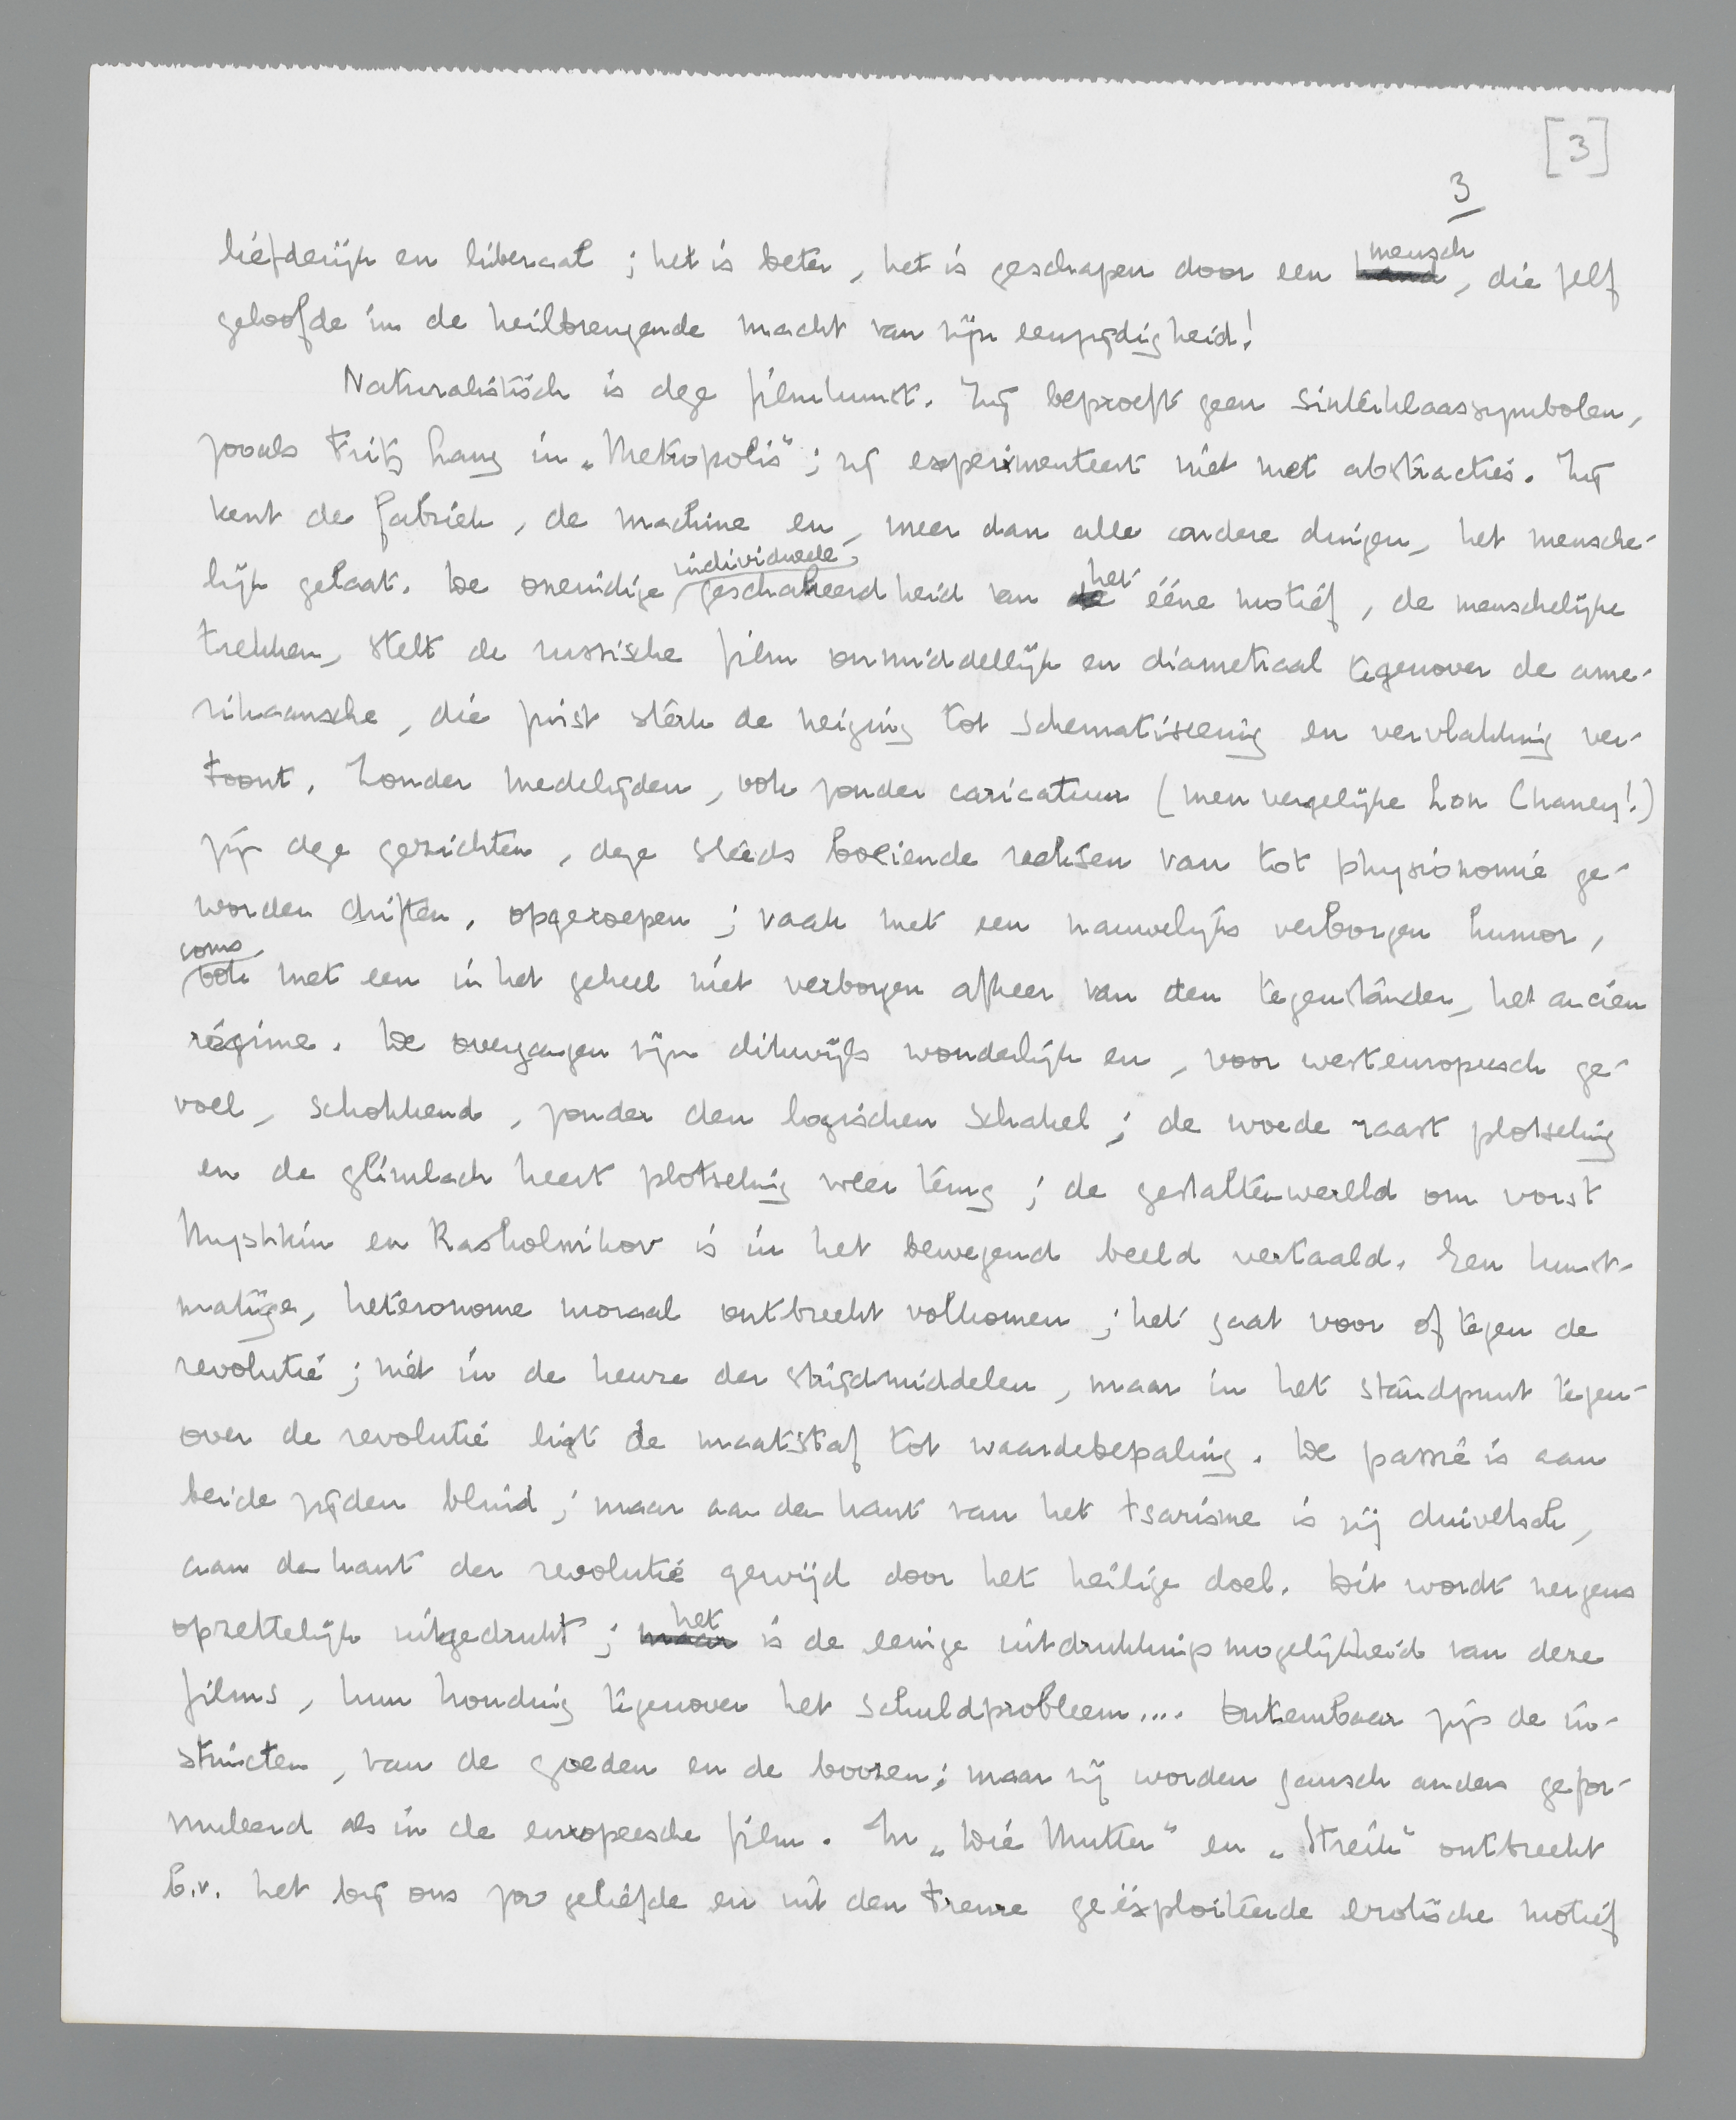 [3]
3
liefderijk en liberaal ; het is beter, het is geschapen door een mensch, die zelf
geloofde in de heilbrengende macht van zijn eenzijdigheid!
Naturalistisch is deze filmkunst. Zij beproeft geen Sinterklaassymbolen,
zooals Fritz Lang in „Metropolis”; zij experimenteert niet met abstracties. Zij
kent de fabriek, de machine en, meer dan alle andere dingen, het mensche-
lijk gelaat. De oneindige, individueele, geschakeerdheid van het ééne motief, de menschelijke
trekken, stelt de russische film onmiddellijk en diametraal tegenover de ame-
rikaansche, die juist sterk de neiging tot schematiseering en vervlakking ver-
toont. Zonder medelijden, ook zonder caricatuur (men vergelijke Lon Chaney!)
zijn deze gezichten, deze steeds boeiende reeksen van tot physionomie ge-
worden driften, opgeroepen ; vaak met een nauwelijks verborgen humor,
soms ook met een in het geheel niet verborgen afkeer van den tegenstander, het ancien
régime. De overgangen zijn dikwijls wonderlijk en, voor westeuropeesch ge-
voel, schokkend, zonder den logischen schakel ; de woede raast plotseling
en de glimlach keert plotseling weer terug ; de gestaltenwereld om vorst
Myshkin en Raskolnikov is in het bewegend beeld vertaald. Een kunst-
matige, heteronome moraal ontbreekt volkomen ; het gaat voor of tegen de
revolutie ; niet in de keuze der strijdmiddelen, maar in het standpunt tegen-
over de revolutie ligt de maatstaf tot waardebepaling. De passie is aan
beide zijden blind ; maar aan den kant van het tsarisme is zij duivelsch,
aan den kant der revolutie gewijd door het heilige doel. Dit wordt nergens
opzettelijk uitgedrukt ; het is de eenige uitdrukkingsmogelijkheid van deze
films, hun houding tegenover het schuldprobleem.... Ontembaar zijn de in-
stincten, van de goeden en de boozen; maar zij worden gansch anders gefor-
muleerd als in de europeesche film. In „Die Mutter” en „Streik” ontbreekt
b.v. het bij ons zoo geliefde en uit den treure geëxploiteerde erotische motief